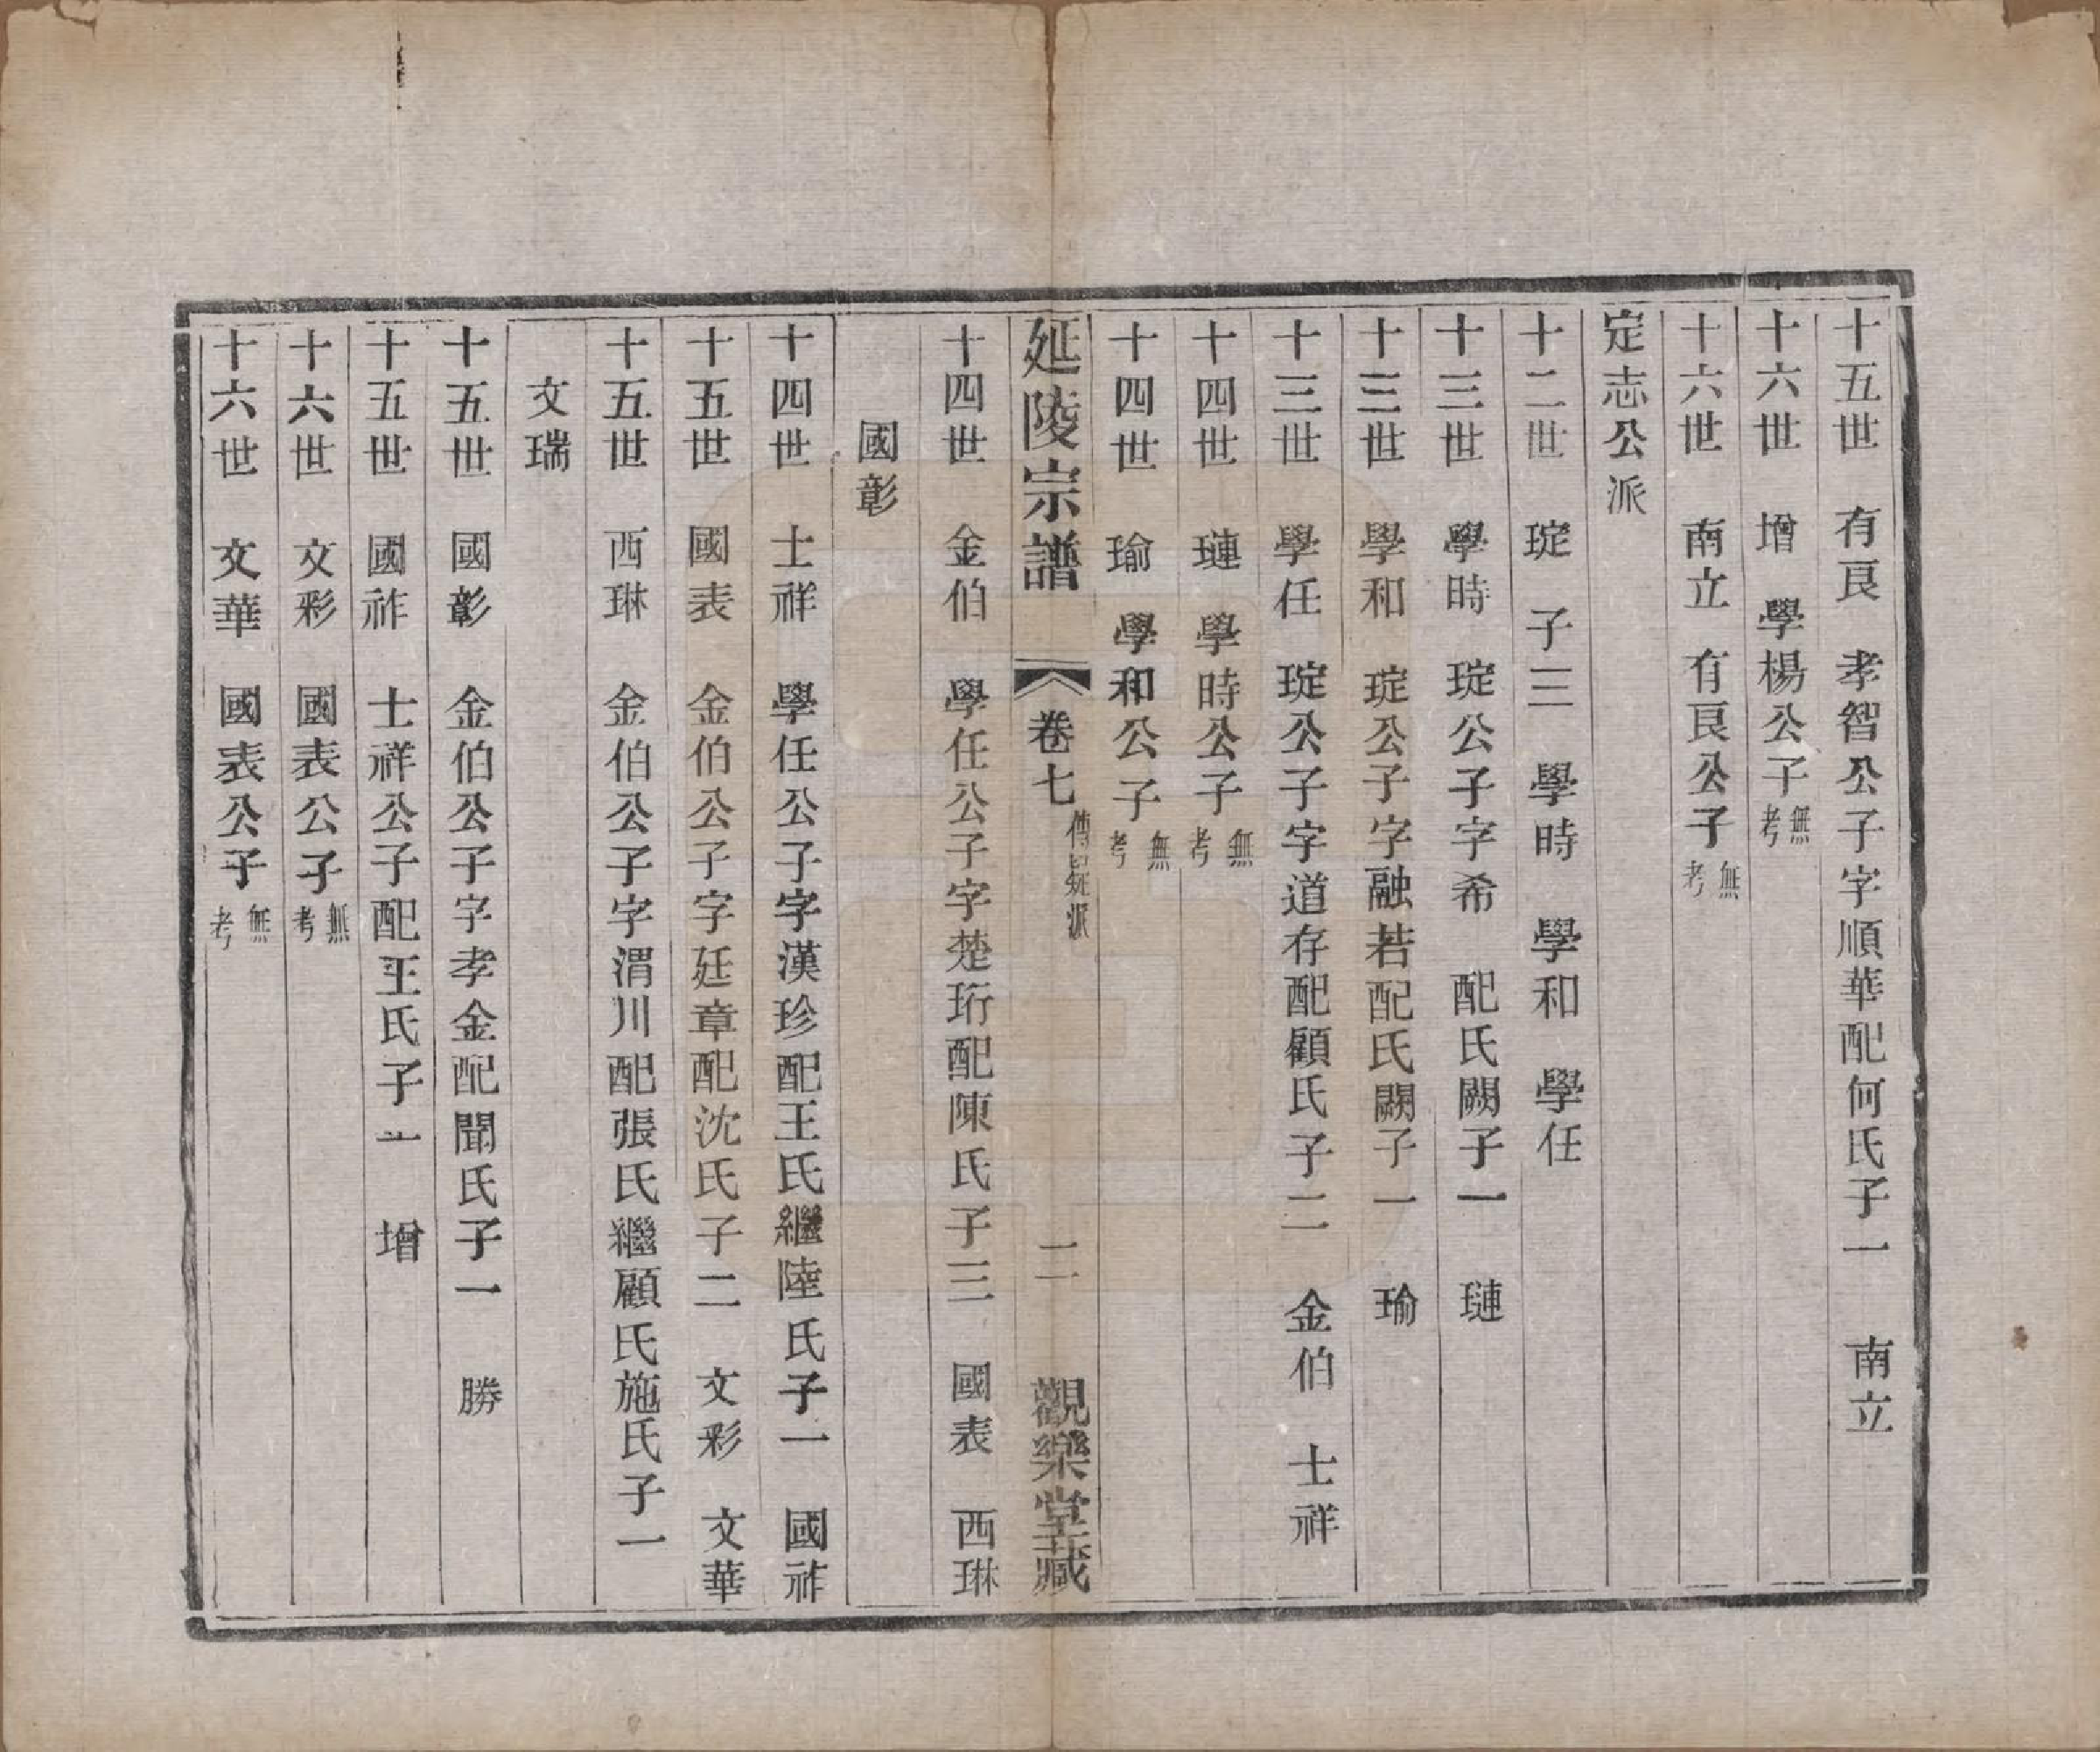 十五世　有良　孝智公子字順華配何氏子一　南立
十六世　增　學楊公子無考
十六世　南立　有良公子無考
定志公派
十二世　琔　子三　學時　學和　學任
十三世　學時　琔公子字希　配氏闕子一　璉
十三世　學和　琔公子字融若配氏闕子一　瑜
十三世　學任　琔公子字道存配顧氏子二　金伯　士祥
十四世　璉　學時公子無考
十四世　瑜　學和公子無考
延陵宗譜　卷七　傳疑派　二　觀樂堂藏
十四世　金伯　學任公子字楚珩配陳氏子三　國表　西琳
國彰
十四世　士祥　學任公子字漢珍配王氏繼陸氏子一　國祚
十五世　國表　金伯公子字廷章配沈氏子二　文彩　文華
十五世　西琳　金伯公子字渭川配張氏繼顧氏施氏子一
文瑞
十五世　國彰　金伯公子字孝金配聞氏子一　勝
十五世　國祚　士祥公子配王氏子一　增
十六世　文彩　國表公子無考
十六世　文華　國表公子無考